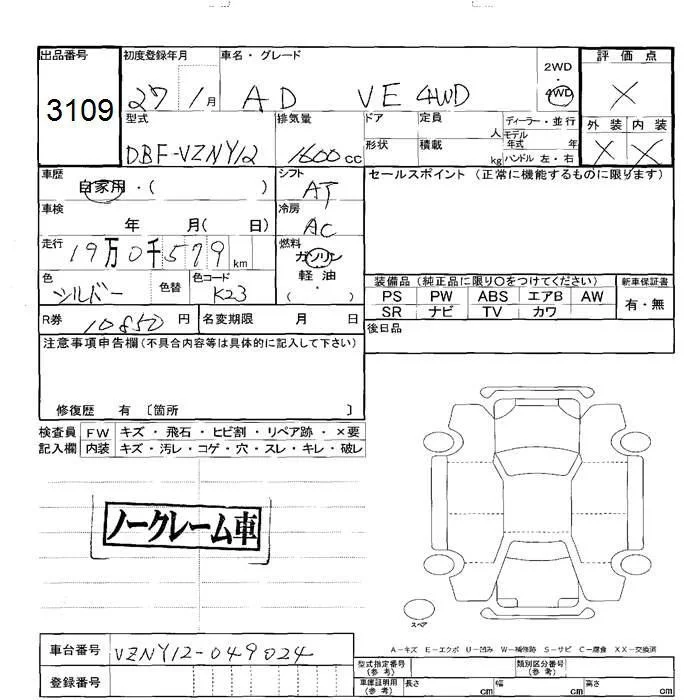 出品番号 初度登録年月 車名・グレード 評価点
3109 27 1月 AD VE 4WD 2WD・4WD X
型式 排気量 ドア 定員 人 ディーラー・並行 外装 内装
DBF-VZNY12 1600cc 形状 積載 kg モデル年式 年 ハンドル 左・右 X X
車歴 自家用・( ) シフト AT セールスポイント (正常に機能するものに限ります)
車検 年 月( 日) 冷房 AC
走行 19万0千579km 燃料 ガソリン 軽油 ( )
色 シルバー 色替 色コード K23
装備品 (純正品に限り○をつけてください) 新車保証書
PS PW ABS エアB AW 有・無
SR ナビ TV カワ
R券 10850円 名変期限 月 日 後日品
注意事項申告欄(不具合内容等は具体的に記入して下さい)
修復歴 有 〔箇所 〕
検査員 FW キズ・飛石・ヒビ割・リペア跡・×要
記入欄 内装 キズ・汚レ・コゲ・穴・スレ・キレ・破レ
ノークレーム車
スペア
A-キズ E-エクボ U-凹み W-補修跡 S-サビ C-腐食 XX-交換済
車台番号 VZNY12-049024 型式指定番号(参考) 類別区分番号(参考)
登録番号 車庫証明用(参考) 長さ cm 幅 cm 高さ cm